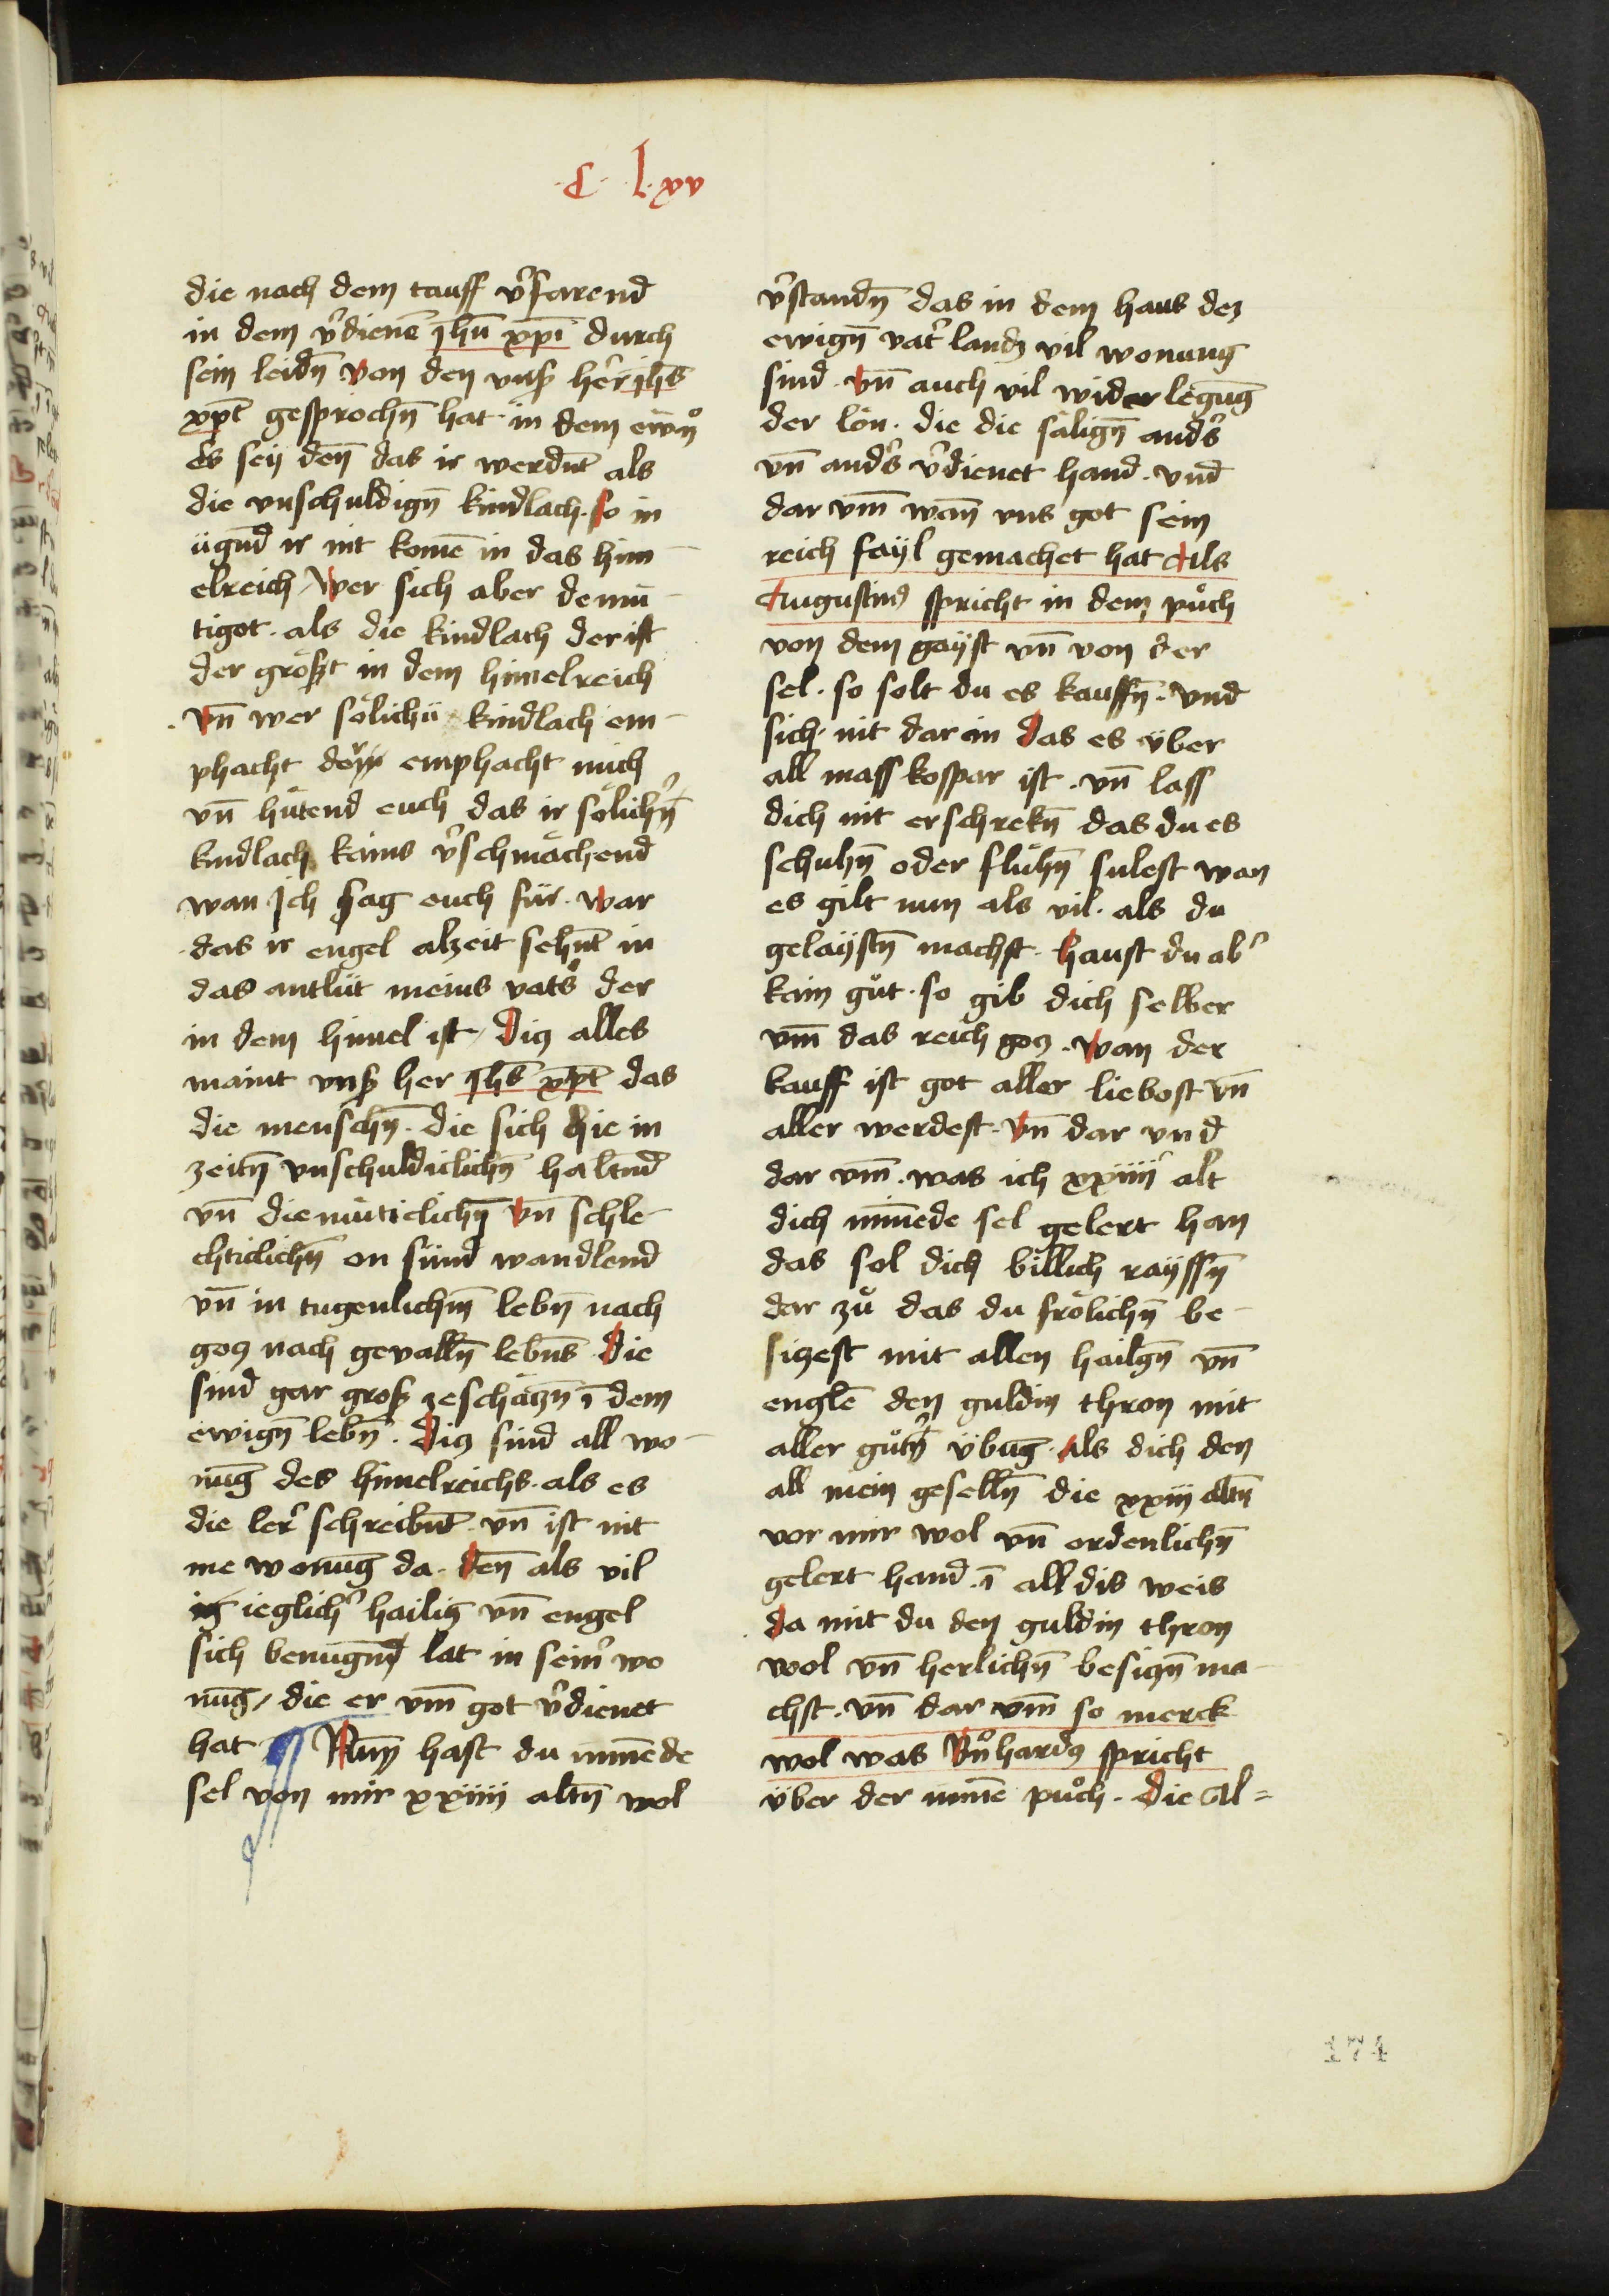 ·C· l·xv
die nach dem tauff v̾farend
in dem v̾dienē jhū xp̄i durch
sein leidn̄ von den vnsß her̄ jhs̄
xp̄t gesprochn̄ hat · in dem ewn͛
es sey den̄ das ir werdn̄t als
die vnschuldign̄ kindlach · so in
ügn̄d ir nit komē in das him̄
elreich / Wer sich aber demü
tigot · als die kindlach der ist
der größt in dem himelreich
vn̄ wer sölichü kindlach em-
phacht der emphacht mich
vn̄ hütend euch das ir sölichn̄
kindlach kains v̾schmächend
wan ich sag euch für · war
das ir engel alzeit sehn̄t in
das antlüt meins vat͛s der
in dem himel ist / Dis alles
maint vnsß her jhs̄ xp̄t das
die menschn̄ · die sich hie in
zeitn̄ vnschuldiclichn̄ haltn̄d
vn̄ diemüticlichn̄ vn̄ schle-
chticlichn̄ on sünd wandlend
vn̄ in tugenlichm̄ lebn̄ nach
gocz nach gevalln̄ lebn̄s Die
sind gar groß ze schäczn̄ ī dem
ewign̄ lebn̄ · Dis sind all wo-
nūg des himelreichs · als es
die ler͛ schreibn̄t · vn̄ ist nit
me wonūg da · den̄ als vil
ieglich͛ hailiḡ vn̄ engel
sich benügn̄ lat in sein͛ wo
nūg / die er vm̄ got v̾dienet
hat ¶ Nun hast du minēde
sel von mir xxiiii altn̄ wol
v̾standn̄ das in dem haus dez
ewign̄ vat͛ landz vil wonung
sind · vn̄ auch vil widerlegūg
der lön · die die sälign̄ and͛s
vn̄ and͛s v̾dienet hand · vnd
dar vm̄ wan̄ vns got sein
reich fayl gemachet hat Als
Augustin9 spricht in dem puͦch
von dem gayst vn̄ von der
sel · so solt du es kauffn̄ · vnd
sich · nit dar in das es über
all mass kospar ist · vn̄ lass
dich nit erschrekn̄ das du es
schuhn̄ oder fluhn̄ sulest wan
es gilt nun als vil · als du
gelaystn̄ machst · haust du ab͛
kain guͦt · so gib dich selber
vm̄ das reich gocz · wan der
kauff ist got aller liebost vn̄
aller werdest · vn̄ dar vnd
dar vm̄ · was ich xxiiii͛ alt
dich minēde sel gelert han
das sol dich billich rayssn̄
dar zuͦ das du frölichn̄ be-
siczest mit allen hailgn̄ vn̄
englē den guldin thron mit
aller guͦtn̄ übūg · als dich den
all mein geselln̄ die xxiij altn̄
vor mir wol vn̄ ordenlichn̄
gelert hand · ī all dis weis
da mit du den guldin thron
wol vn̄ herlichn̄ besiczn̄ ma-
chst · vn̄ dar vm̄ so merck
wol was Bn͛hard9 spricht
über der minē puͦch · Die al=
174